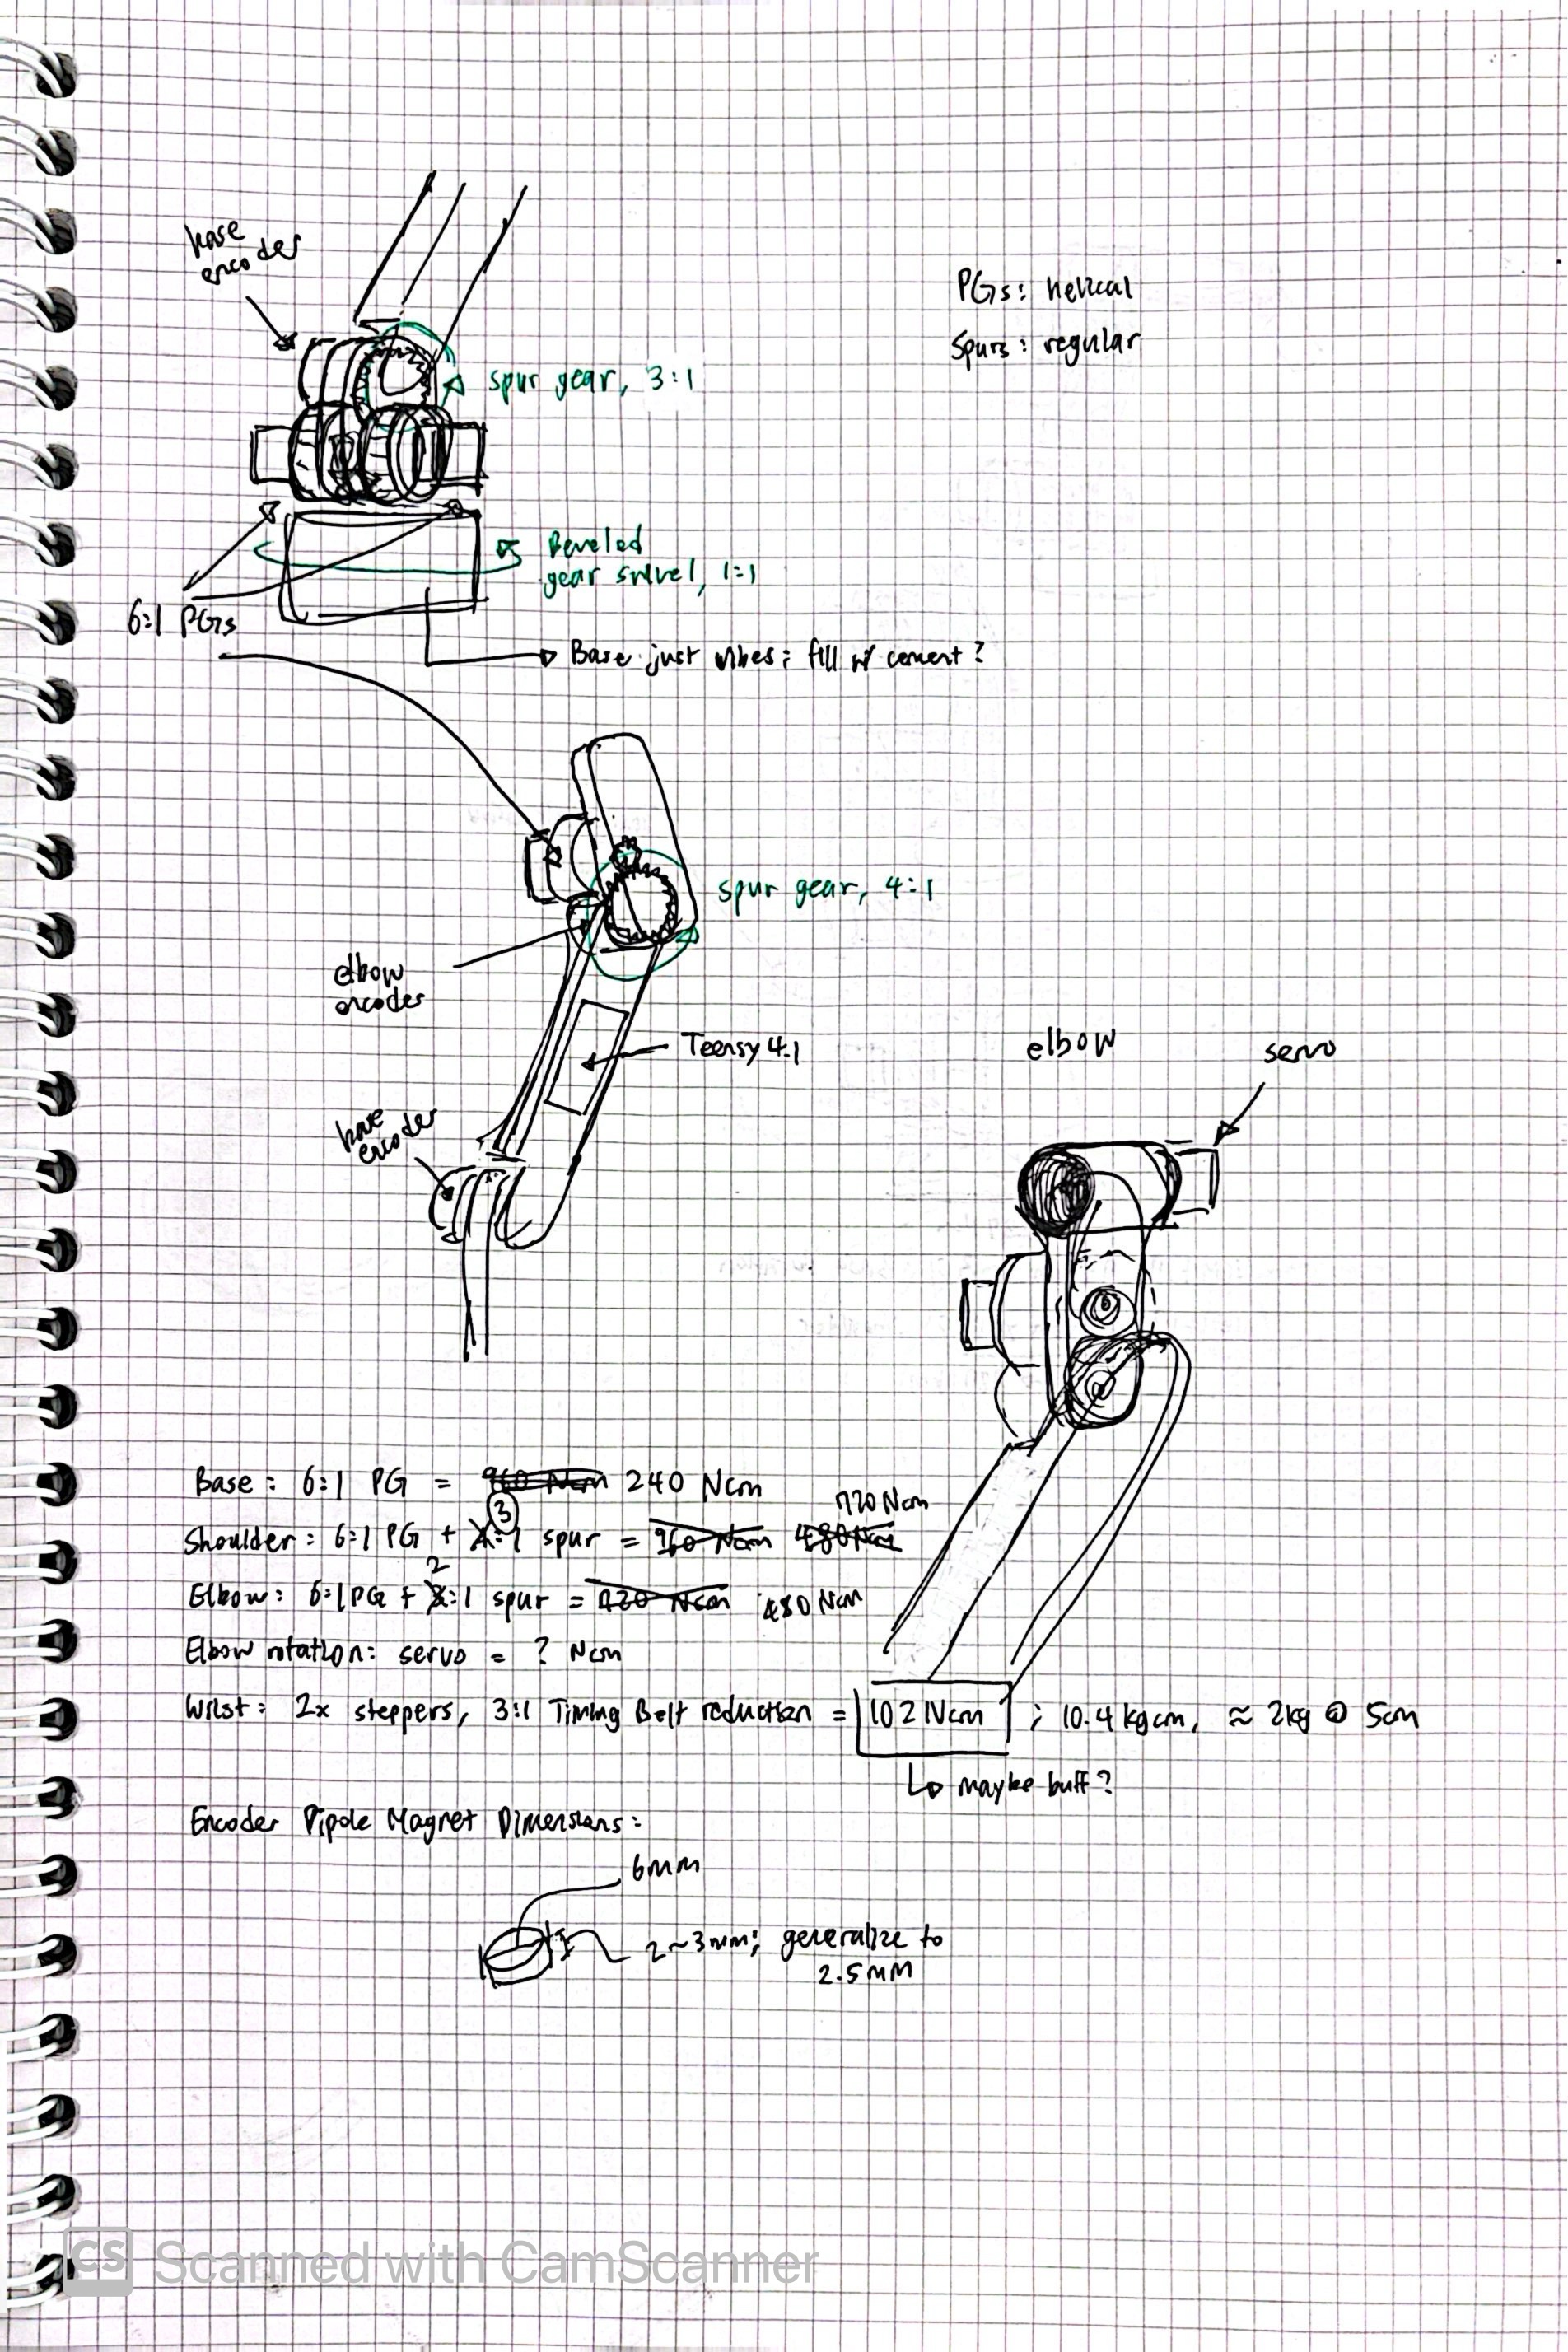 base
encoder
PGs: helical
Spurs: regular
spur gear, 3:1
Beveled
gear swivel, 1:1
6:1 PGs
Base just vibes; fill w/ cement?
spur gear, 4:1
elbow
encoder
Teensy 4.1
elbow
servo
base
encoder
Base: 6:1 PG = 960 Ncm 240 Ncm
720 Ncm
3
Shoulder: 6:1 PG + 4:1 spur = 960 Ncm 480 Ncm
2
Elbow: 6:1 PG + :1 spur = 720 Ncm 480 Ncm
Elbow rotation: servo = ? Ncm
Wrist: 2x steppers, 3:1 Timing Belt reduction = 102 Ncm ; 10.4 kgcm, ≈ 2kg @ 5cm
maybe buff?
Encoder Dipole Magnet Dimensions:
6mm
2~3mm; generalize to
2.5mm
CS Scanned with CamScanner